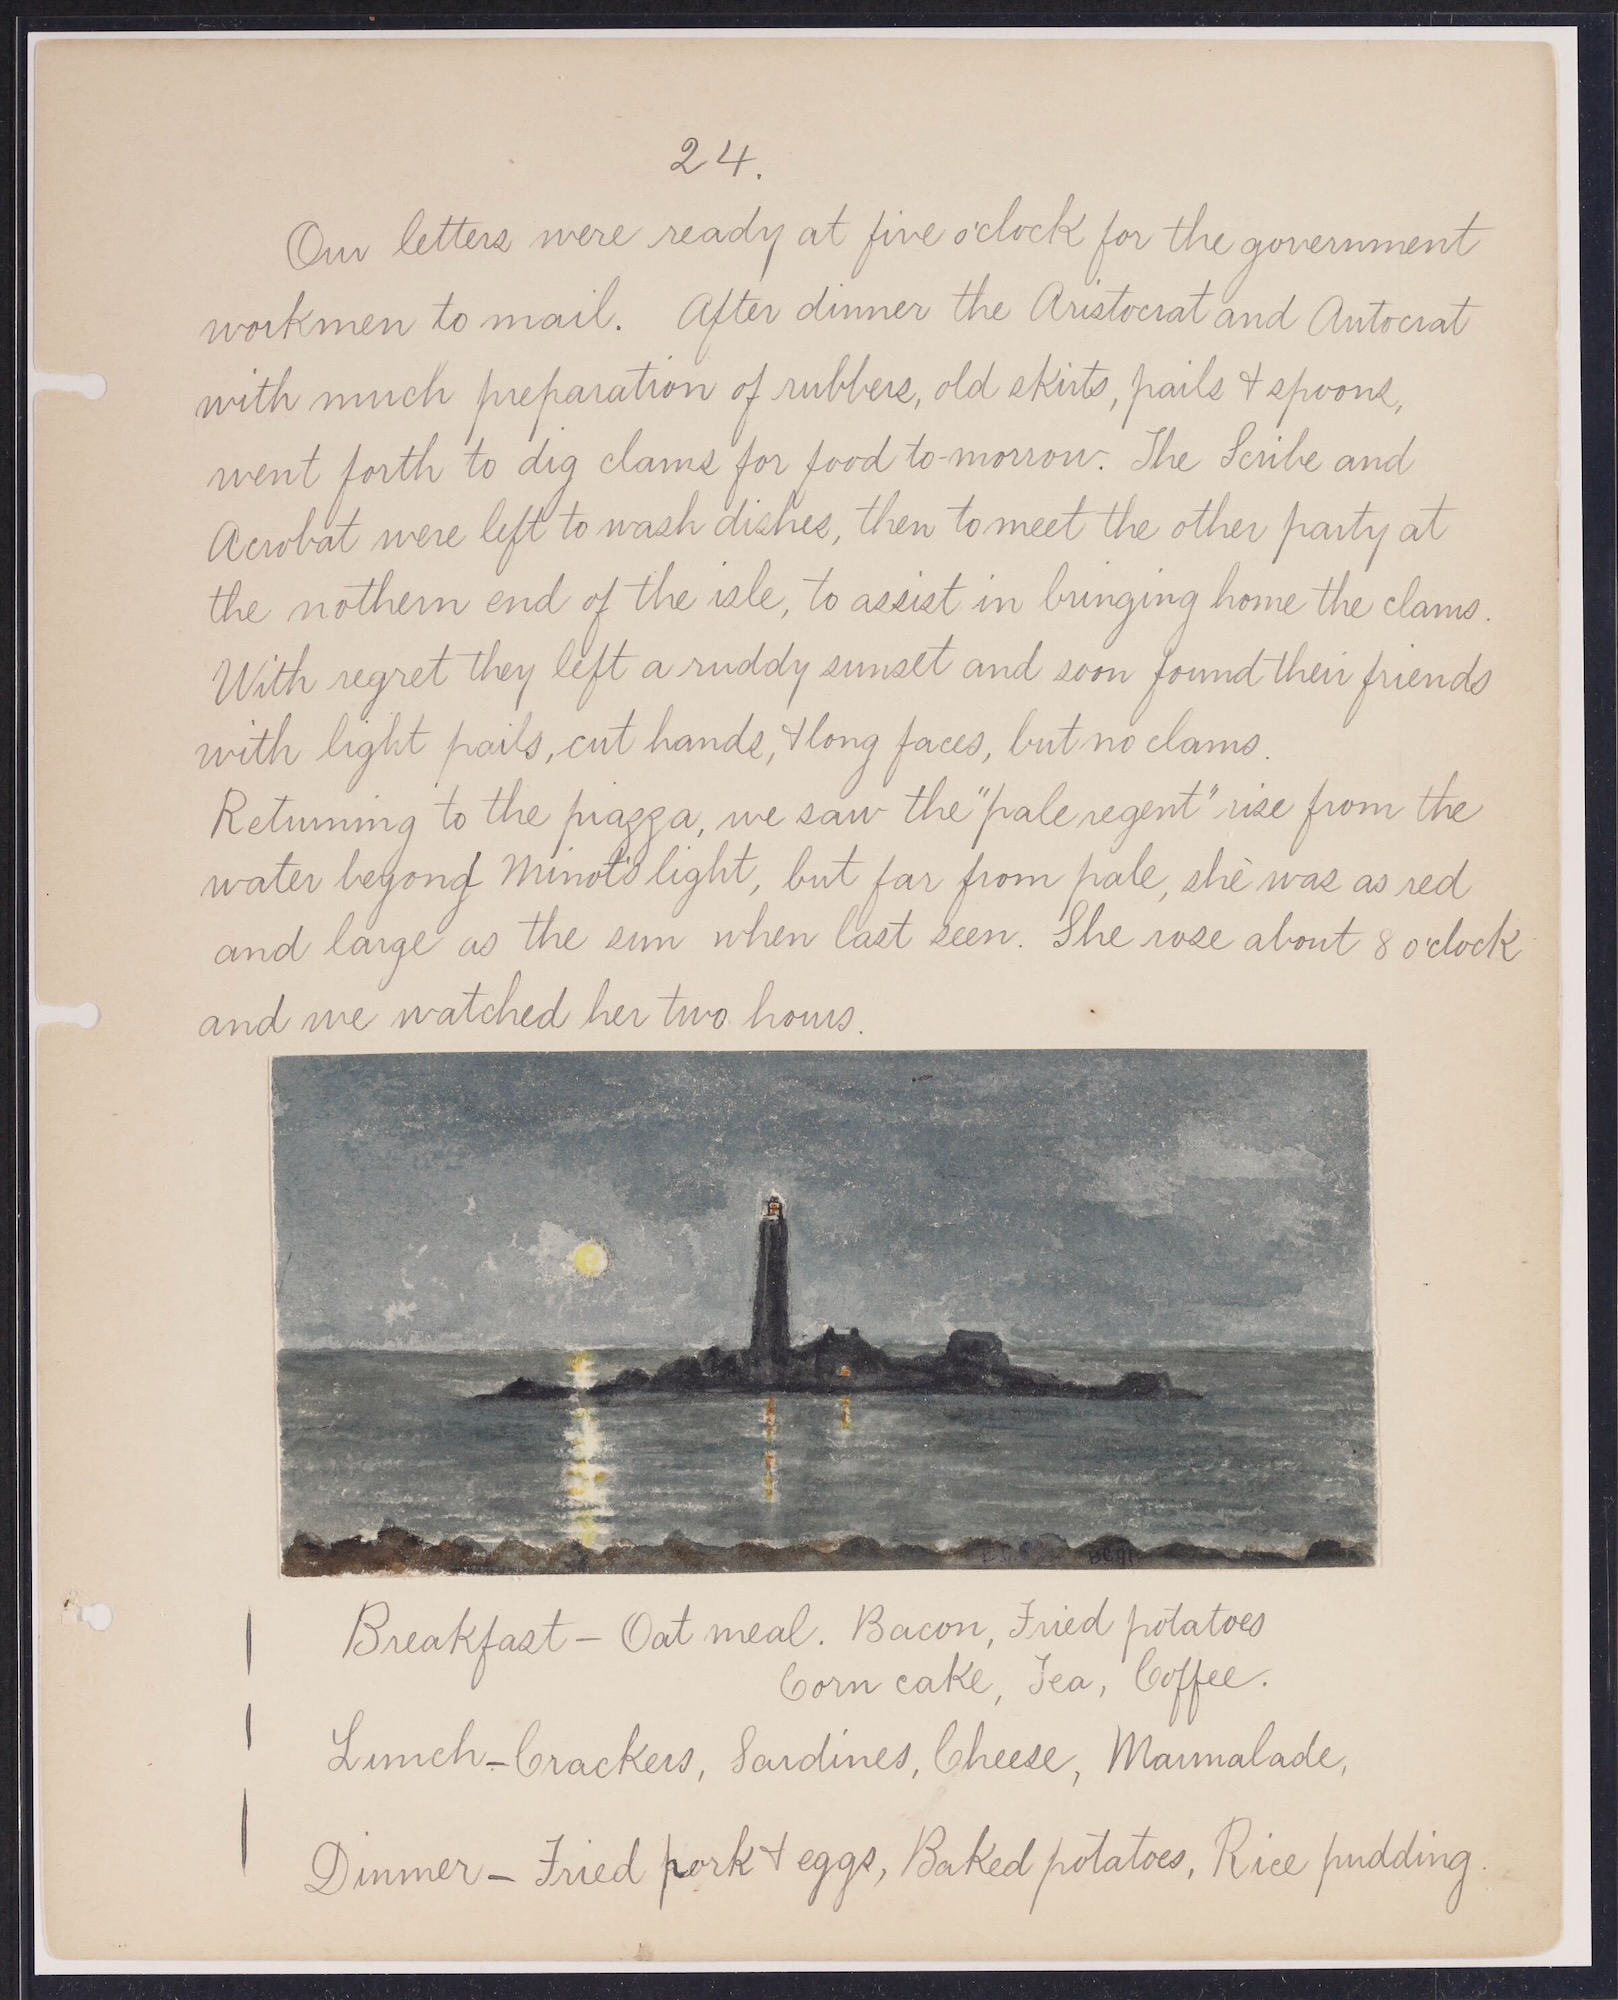 24.
Our letters were ready at five o'clock for the government
workmen to mail. After dinner the Aristocrat and Autocrat
with much preparation of rubbers, old skirts, pails & spoons,
went forth to dig clams for food to-morrow. The Scribe and
Acrobat were left to wash dishes, then to meet the other party at
the nothern end of the isle, to assist in bringing home the clams.
With regret they left a ruddy sunset and soon found their friends
with light pails, cut hands, & long faces, but no clams.
Returning to the piazza, we saw the "pale regent" rise from the
water beyond Minot's light, but far from pale, she was as red
and large as the sun when last seen. She rose about 8 o'clock
and we watched her two hours.
Breakfast - Oat meal. Bacon, Fried potatoes
Corn cake, Tea, Coffee.
Lunch - Crackers, Sardines, Cheese, Marmalade,
Dinner - Fried pork & eggs, Baked potatoes, Rice pudding.